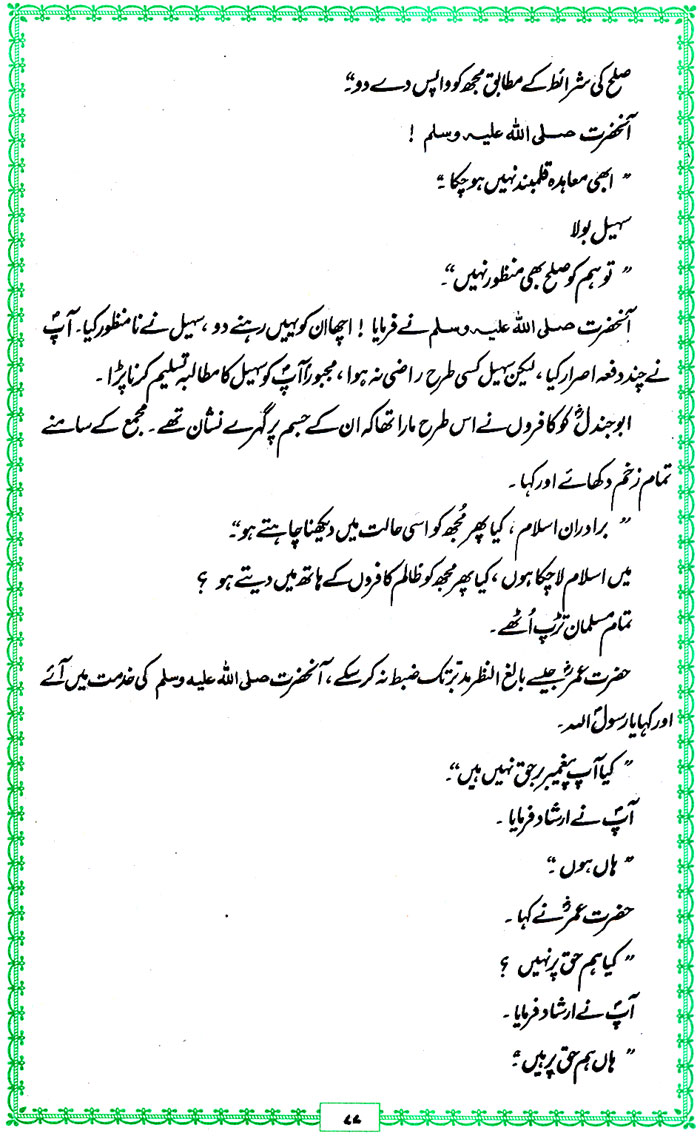 صلح کی شرائط کے مطابق مجھ کو واپس دے دو"۔
آنحضرت صلی اللہ علیہ وسلم !
" ابھی معاہدہ قلمبند نہیں ہو چکا "۔
سہیل بولا
" تو ہم کو صلح بھی منظور نہیں "۔
آنحضرت صلی اللہ علیہ وسلم نے فرمایا ! اچھا ان کو یہیں رہنے دو ، سہیل نے نا منظور کیا۔ آپؐ
نے چند دفعہ اصرار کیا ، لیکن سہیل کسی طرح راضی نہ ہوا ، مجبوراً آپؐ کو سہیل کا مطالبہ تسلیم کرنا پڑا ۔
ابو جندلؓ کو کافروں نے اس طرح مارا تھا کہ ان کے جسم پر گہرے نشان تھے ۔ مجمع کے سامنے
تمام زخم دکھائے اور کہا ۔
" برادران اسلام ، کیا پھر مُجھ کو اسی حالت میں دیکھنا چاہتے ہو"۔
میں اسلام لا چکا ہوں ، کیا پھر مجھ کو ظالم کافروں کے ہاتھ میں دیتے ہو ؟
تمام مسلمان تڑپ اُٹھے ۔
حضرت عمرؓ جیسے بالغ النظر مدبر تک ضبط نہ کر سکے ، آنحضرت صلی اللہ علیہ وسلم کی خدمت میں آئے
اور کہا یا رسولؐ اللہ ۔
" کیا آپ پیغمبر برحق نہیں ہیں "۔
آپؐ نے ارشاد فرمایا ۔
" ہاں ہوں "۔
حضرت عمرؓ نے کہا ۔
" کیا ہم حق پر نہیں ؟
آپؐ نے ارشاد فرمایا ۔
" ہاں ہم حق پر ہیں "۔
۷۷